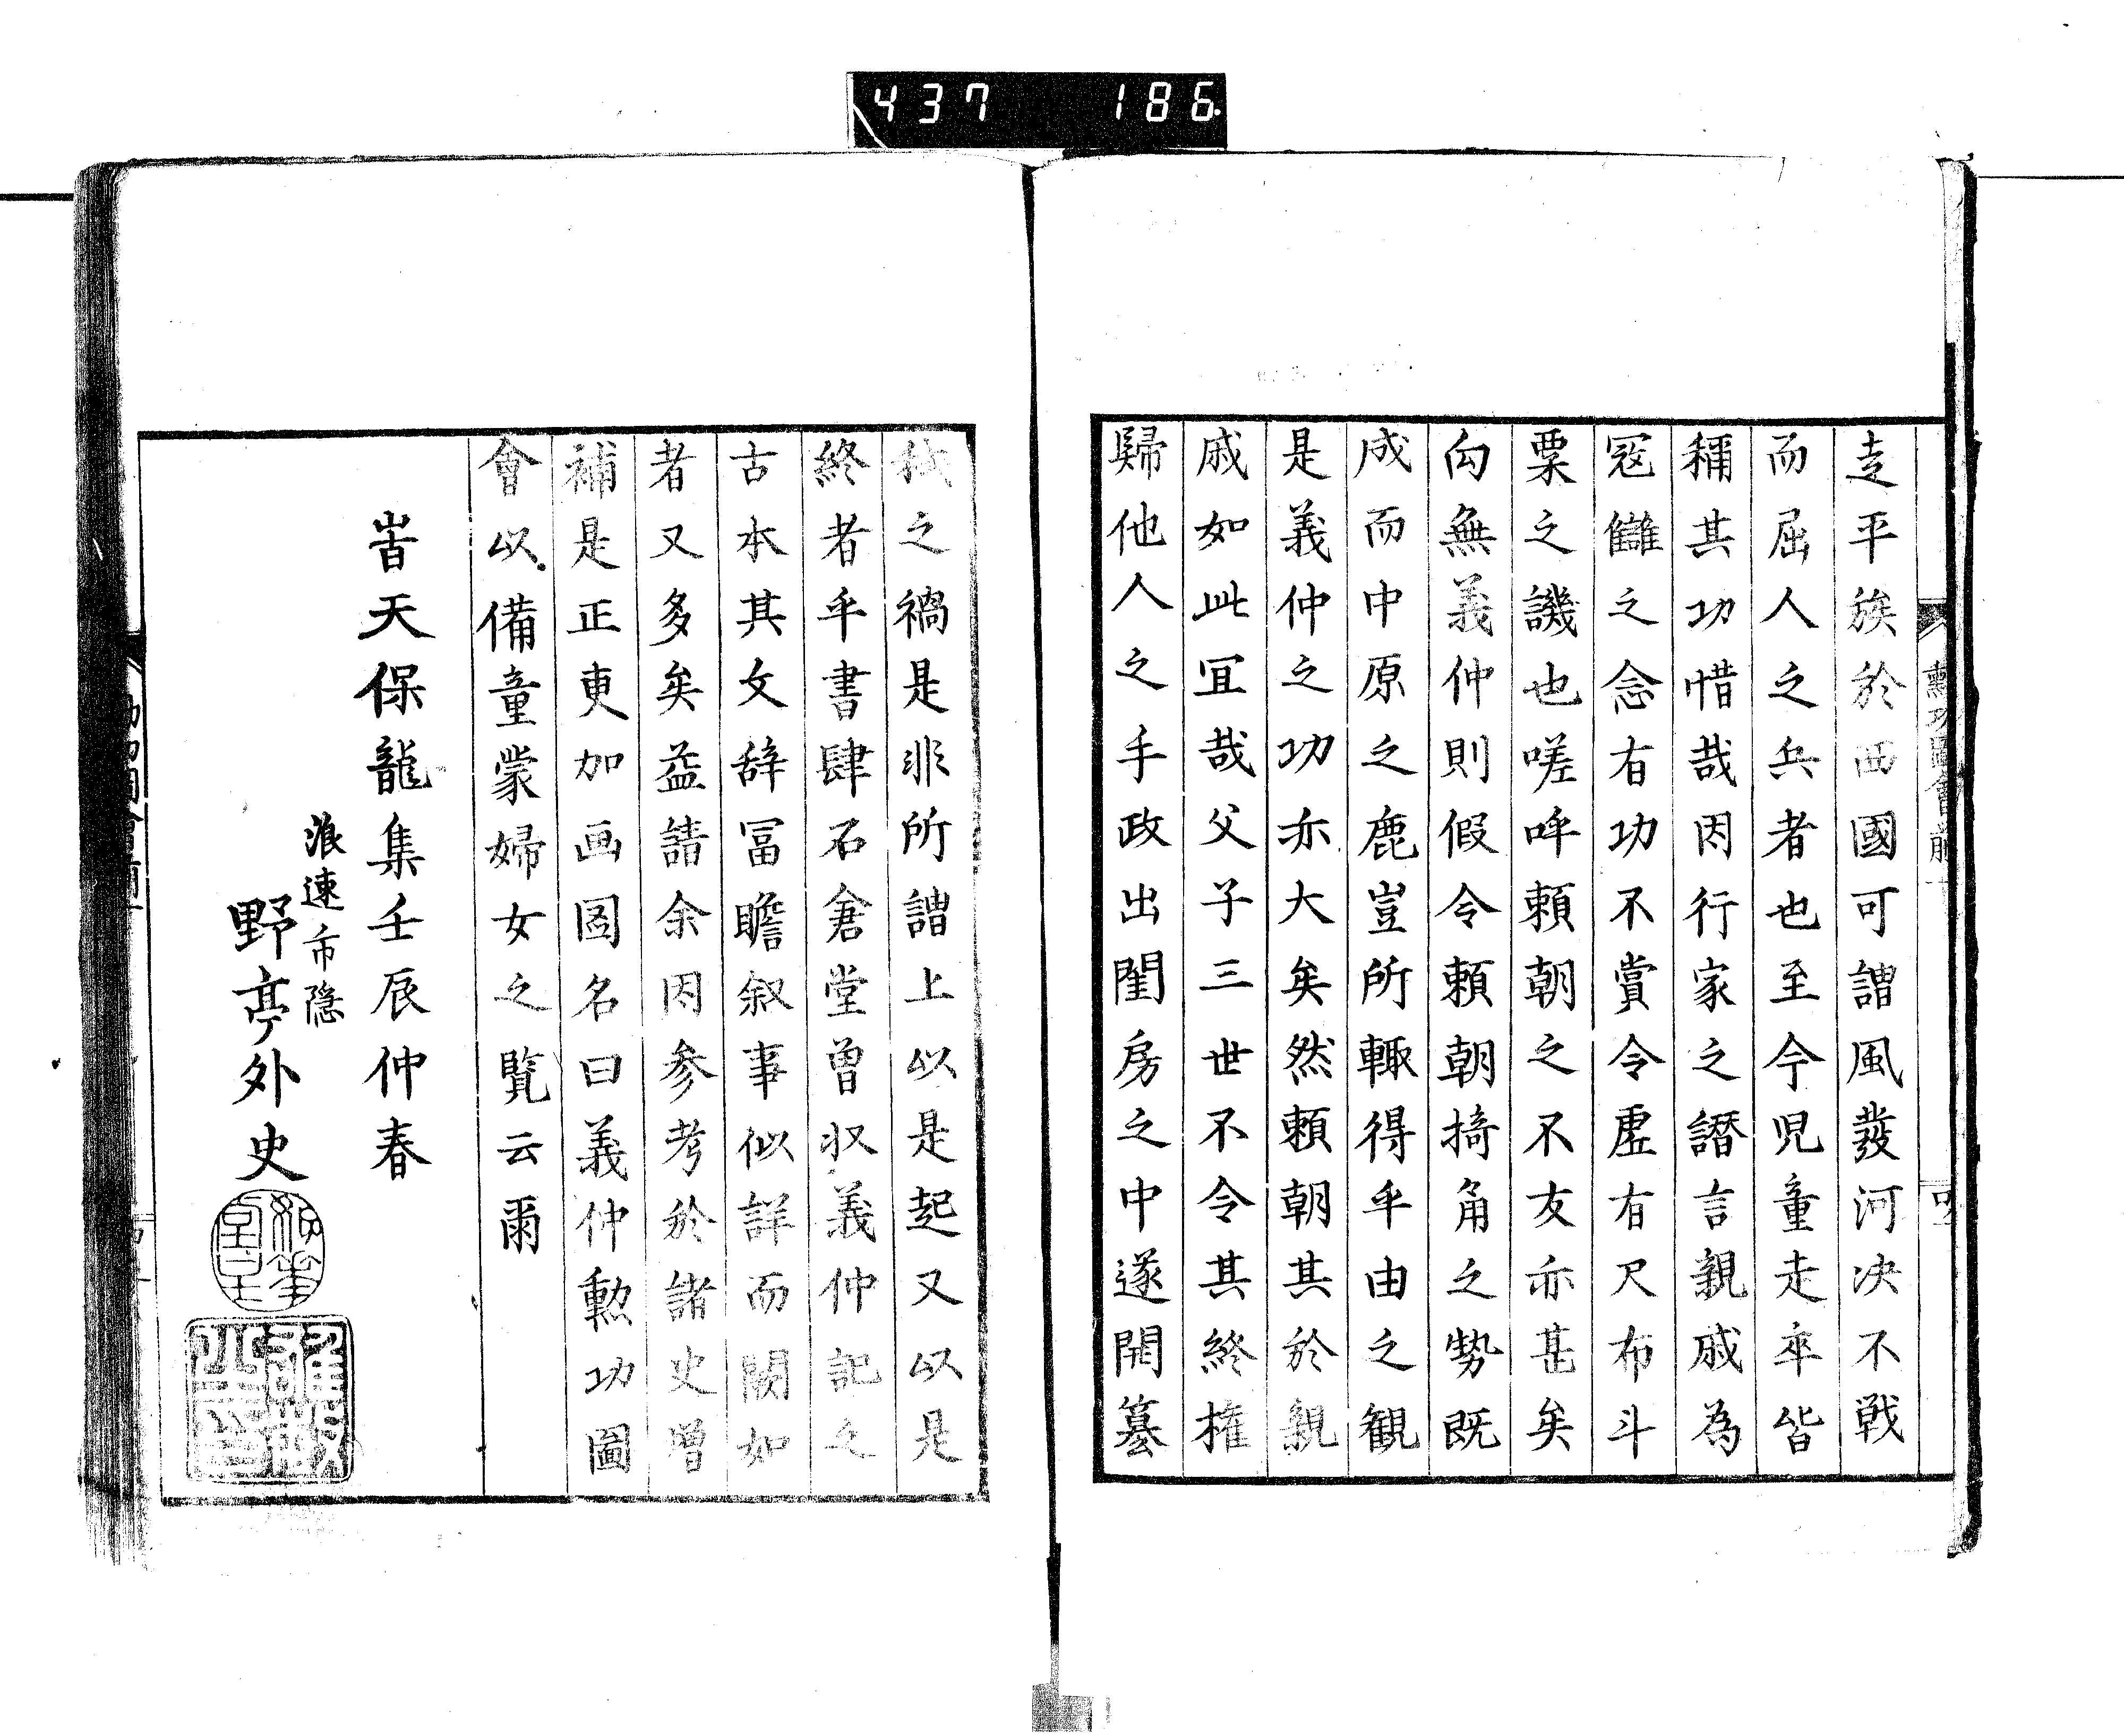 437 186
走平族於西國可謂風發河决不戦
而屈人之兵者也至今児童走卒皆
稱其功惜哉因行家之譖言親戚為
冦讎之念有功不賞令虚有尺布斗
粟之譏也嗟呼頼朝之不友亦甚矣
向無義仲則假令頼朝掎角之勢既
成而中原之鹿豈所輙得乎由之観
是義仲之功亦大矣然頼朝其於親
戚如此冝哉父子三世不令其終権
歸他人之手政出閨房之中遂開簒
弑之禍是非所謂上以是起又以是
終者乎書肆石倉堂曽収義仲記之
古本其文辞冨瞻叙事似詳而闕如
者又多矣益請余因参考於諸史増
補是正更加画図名曰義仲勲功圖
會以備童蒙婦女之覧云爾
旹天保龍集壬辰仲春
浪速市隠
野亭外史